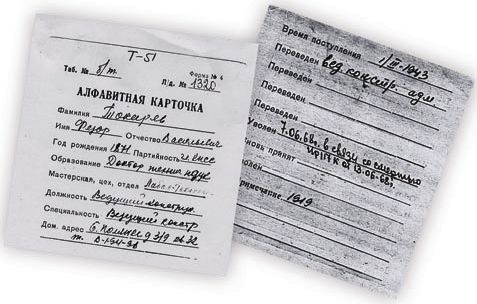 Т-51
Таб. № б/т. Форма № 6
Л/д. № 1320
АЛФАВИТНАЯ КАРТОЧКА
Фамилия Токарев
Имя Федор Отчество Васильевич
Год рождения 1871 Партийность чл. КПСС
Образование Доктор технич. наук
Мастерская, цех, отдел
Должность Ведущий конструк.
Специальность Ведущий констр.
Дом. адрес
Время поступления 1/III-1943
Переведен вед. констр. адм
Переведен
Переведен
Переведен
Уволен 7.06.68г. в связи со смертью
Вновь принят пр. № к от 13.06-68г.
Уволен
Примечание 1919